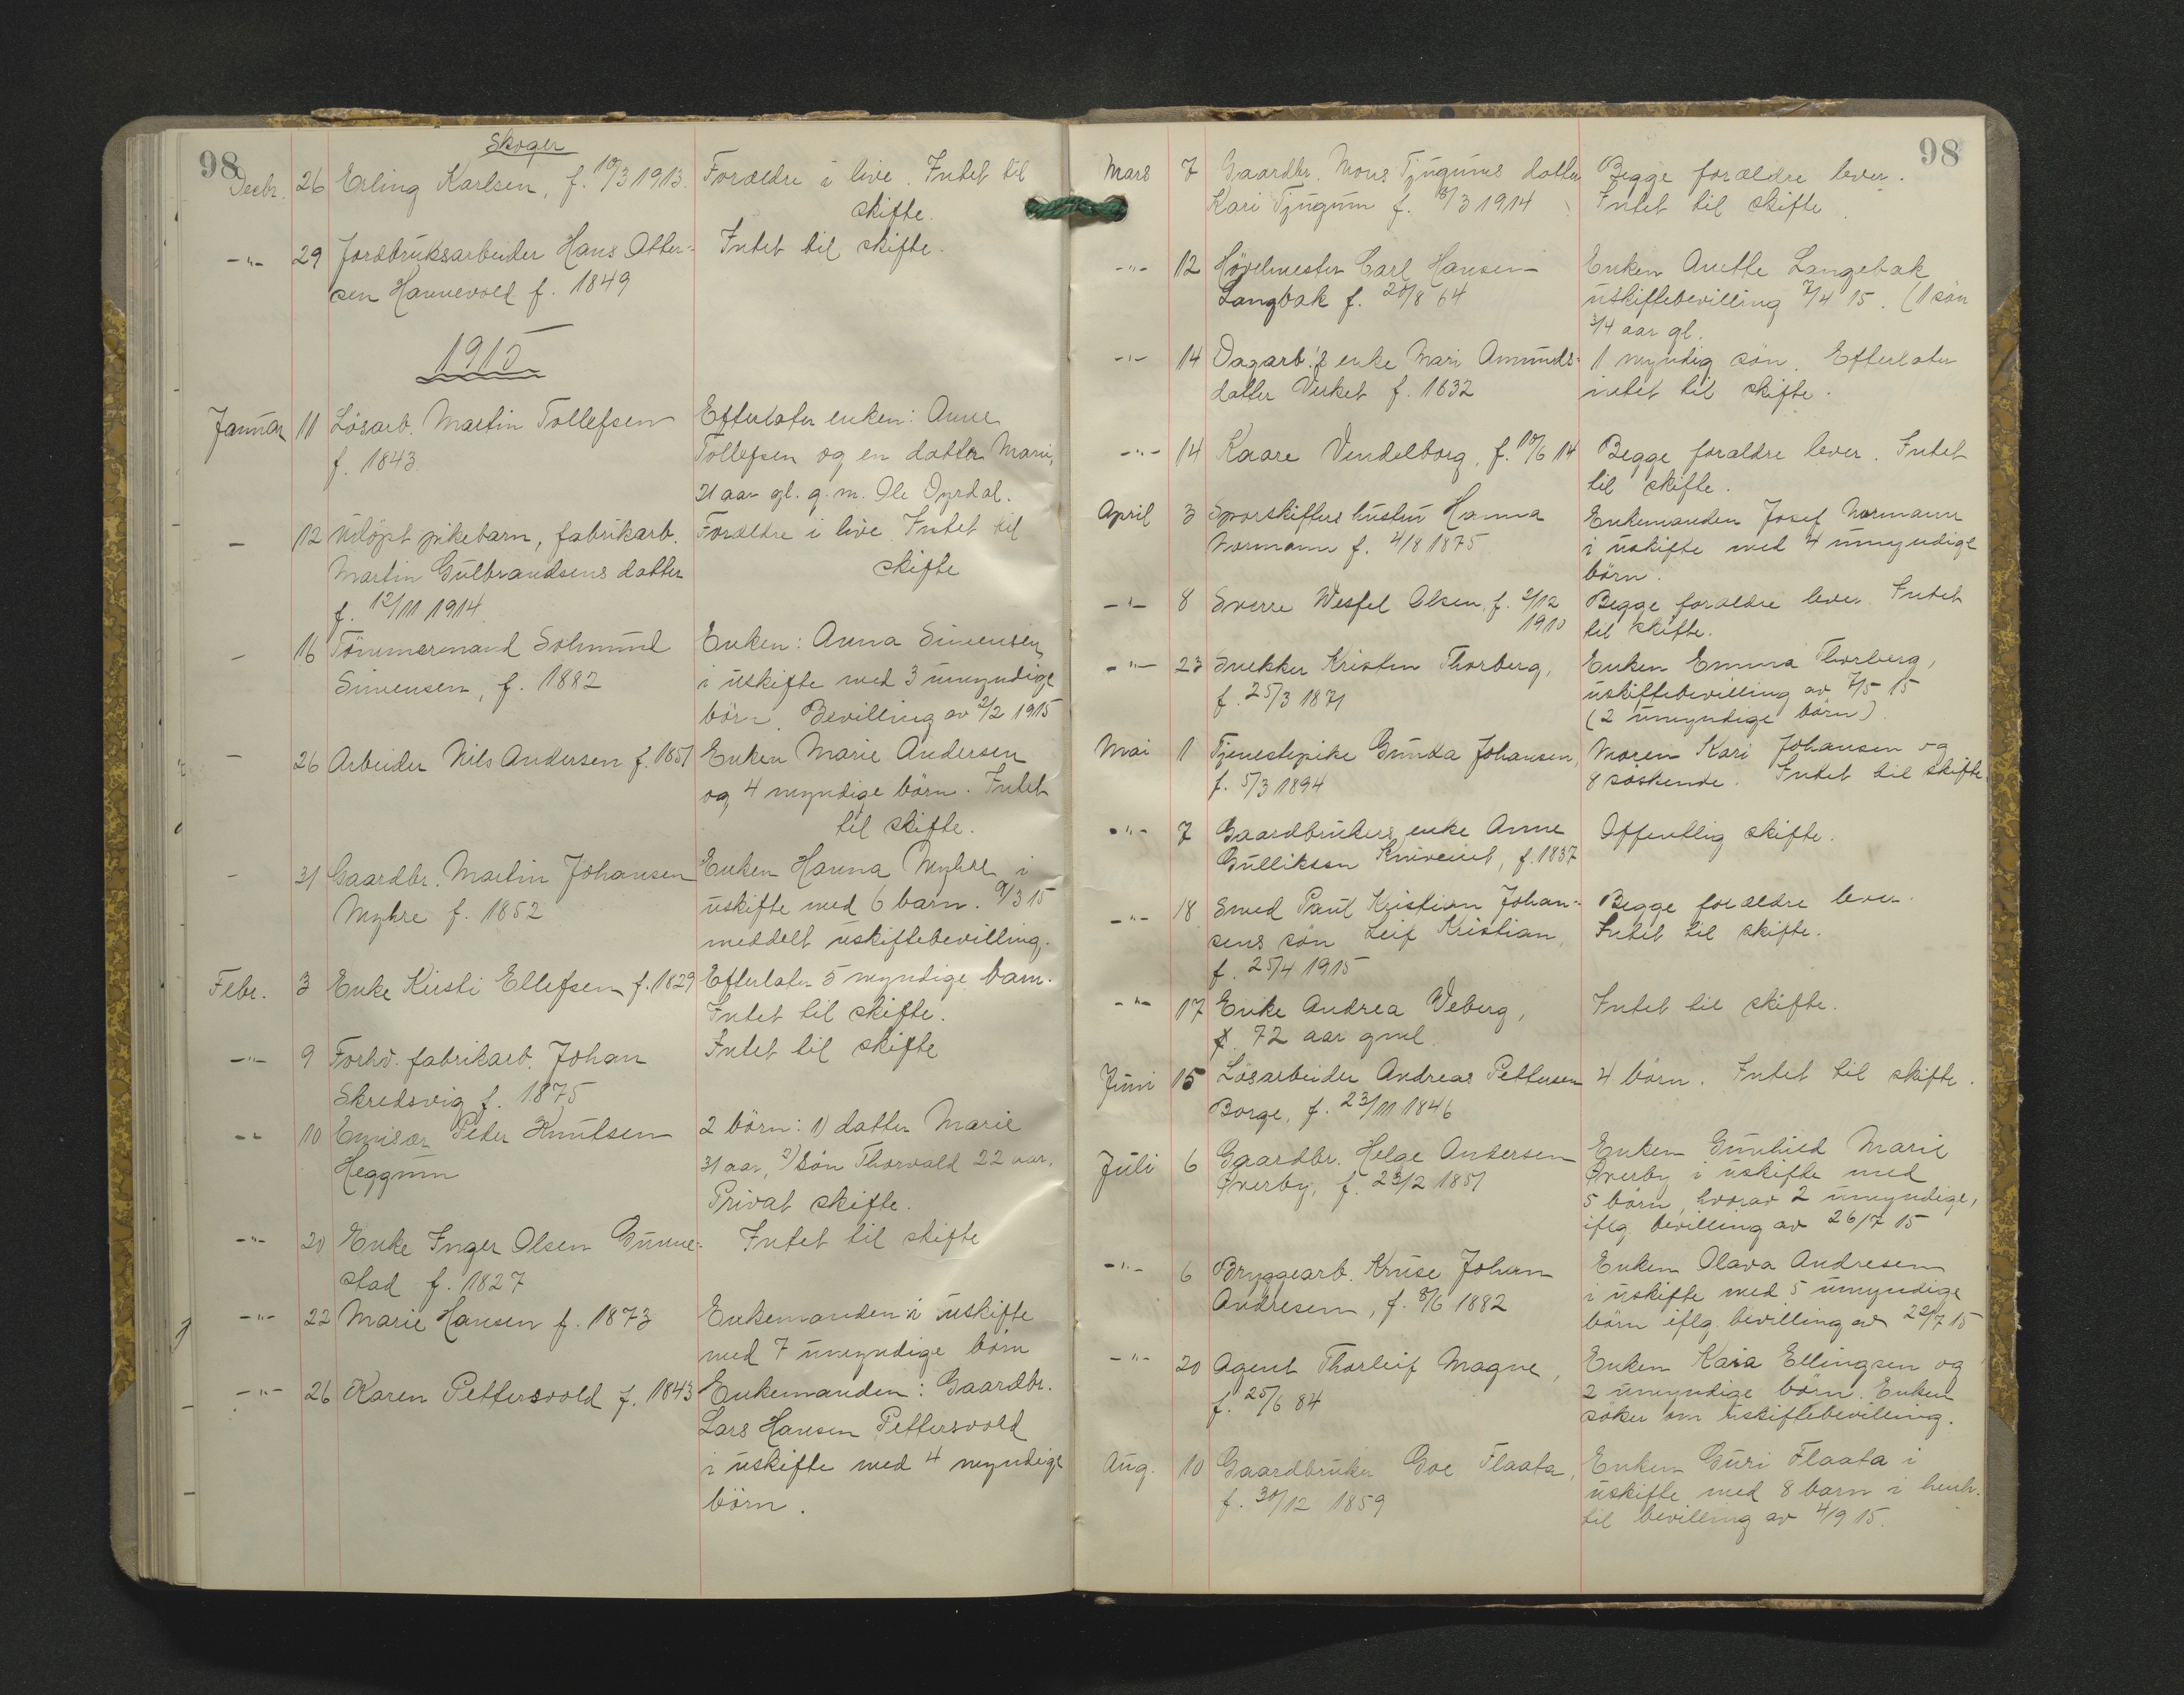 98
Skoger
Decbr. 26 Erling Karlsen, f. 10/3 1913. Forældre i live. Intet til
skifte.
-"- 29 Jordbruksarbeider Hans Otter- Intet til skifte.
sen Hannevold f. 1849
1915
Januar 11 Lösarb. Martin Tollefsen Efterlater enken: Anne
f. 1843. Tollefsen og en datter Marie,
31 aar gl. g. m. Ole Dyrdal.
— 12 Udöpt pikebarn, fabrikarb. Forældre i live. Intet til
Martin Gulbrandsens datter skifte
f. 12/11 1914.
— 16 Tömmermand Solmund Enken: Anna Simensen,
Simensen, f. 1882 i uskifte med 3 umyndige
börn. Bevilling av 2/2 1915
— 26 Arbeider Nils Andersen f. 1851 Enken Marie Andersen
og 4 myndige börn. Intet
til skifte.
— 31 Gaardbr. Martin Johansen Enken Hanna Myhre i
Myhre f. 1852 uskifte med 6 barn. 9/3 15
meddelt uskiftebevilling.
Febr. 3 Enke Kirsti Ellefsen f. 1829 Efterlater 5 myndige barn.
Intet til skifte.
-"- 9 Forhv. fabrikarb. Johan Intet til skifte
Skredsvig f. 1875
-"- 10 Emisær Peder Knutsen 2 börn: 1) datter Marie
Heggum 31 aar, 2) sön Thorvald 22 aar.
Privat skifte.
-"- 20 Enke Inger Olsen Gunne- Intet til skifte
stad f. 1827
-"- 22 Marie Hansen f. 1873 Enkemanden i uskifte
med 7 umyndige börn
-"- 26 Karen Pettersvold f. 1843 Enkemanden: Gaardbr.
Lars Hansen Pettersvold
i uskifte med 4 myndige
börn.
98
Mars 7 Gaardbr. Mons Tjugums datter Begge forældre lever.
Kari Tjugum f. 3/3 1914 Intet til skifte.
-"- 12 Hövelmester Carl Hansen Enken Anette Langebak
Langbak f. 20/8 64 uskiftebevilling 7/4 15. (1 sön
3/4 aar gl.
-"- 14 Dagarb.'s enke Mari Amunds- 1 myndig sön. Efterlater
datter Verket f. 1832 intet til skifte.
-"- 14 Kaare Vendelborg, f. 10/6 14 Begge forældre lever. Intet
til skifte.
April 3 Sporskifters hustru Hanna Enkemanden Josef Normann
Normann f. 4/8 1875 i uskifte med 4 umyndige
börn.
-"- 8 Sverre Wesfel Olsen, f. 2/12 Begge forældre lever. Intet
1910 til skifte.
-"- 23 Snekker Kristen Thorberg, Enken Emma Thorberg,
f. 25/3 1871 uskiftebevilling av 7/5 15
(2 umyndige börn).
Mai 1 Tjenestepike Gunda Johansen, Moren Kari Johansen og
f. 5/3 1894 8 söskende. Intet til skifte.
-"- 7 Gaardbrukers enke Anne Offentlig skifte.
Gulliksen f. 1837
-"- 18 Smed Paul Kristian Johan- Begge forældre lever.
sens sön Leif Kristian, Intet til skifte.
f. 25/4 1915
-"- 17 Enke Andrea Weberg, Intet til skifte.
f. 72 aar gml.
Juni 15 Lösarbeider Andreas Pettersen 4 börn. Intet til skifte.
Borge, f. 23/11 1846
Juli 6 Gaardbr. Helge Andersen Enken Gunhild Marie
Øverby, f. 23/2 1851 Øverby i uskifte med
5 börn, hvorav 2 umyndige,
iflg. bevilling av 26/7 15
-"- 6 Bryggearb. Kruse Johan Enken Olava Andresen
Andresen, f. 8/6 1882 i uskifte med 5 umyndige
börn iflg. bevilling av 22/7 15
-"- 20 Agent Thorleif Magne, Enken Kaia Ellingsen og
f. 25/6 84 2 umyndige börn. Enken
söker om uskiftebevilling.
Aug. 10 Gaardbruker Goe Flaata, Enken Guri Flaata i
f. 30/12 1859 uskifte med 8 barn i henh.
til bevilling av 4/9 15.